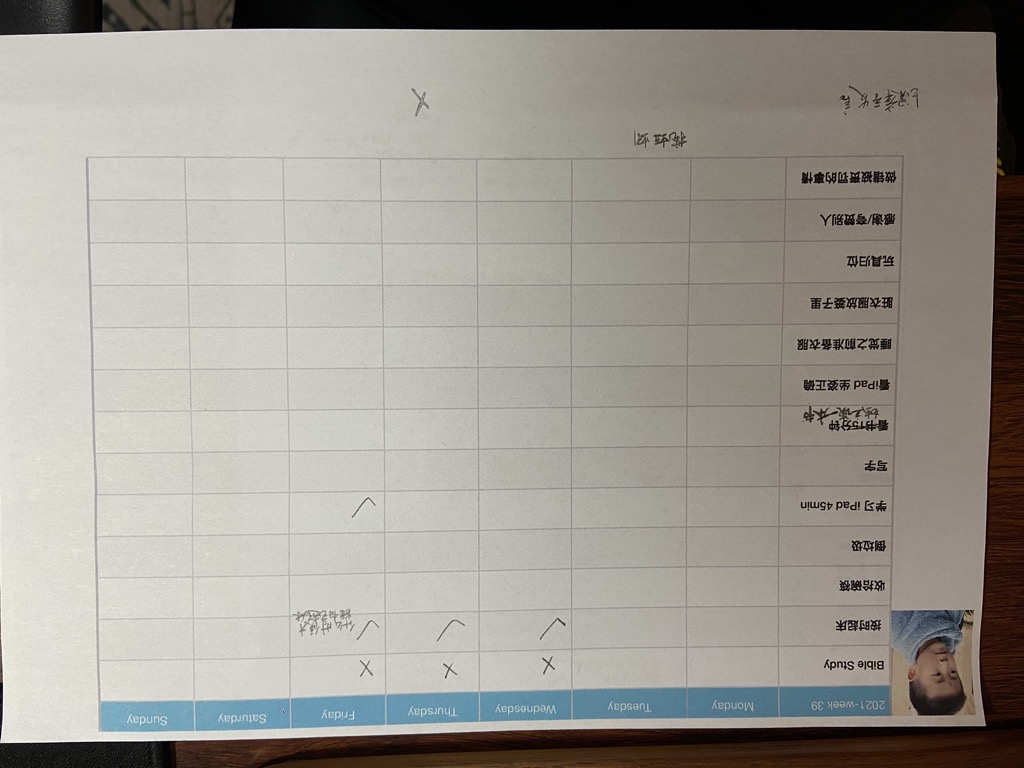 2021-week 39 Monday Tuesday Wednesday Thursday Friday Saturday Sunday
Bible Study X X X
按时起床 ✓ ✓ ✓ 什么时候才
能自己起床
收拾碗筷
倒垃圾
学习 iPad 45min ✓
写字
看书15分钟
独立读一本书
看iPad 坐姿正确
睡觉之前准备衣服
脏衣服放篓子里
玩具归位
感谢/夸赞别人
做错被责罚的事情
挖蚯蚓
上课举手发言 X